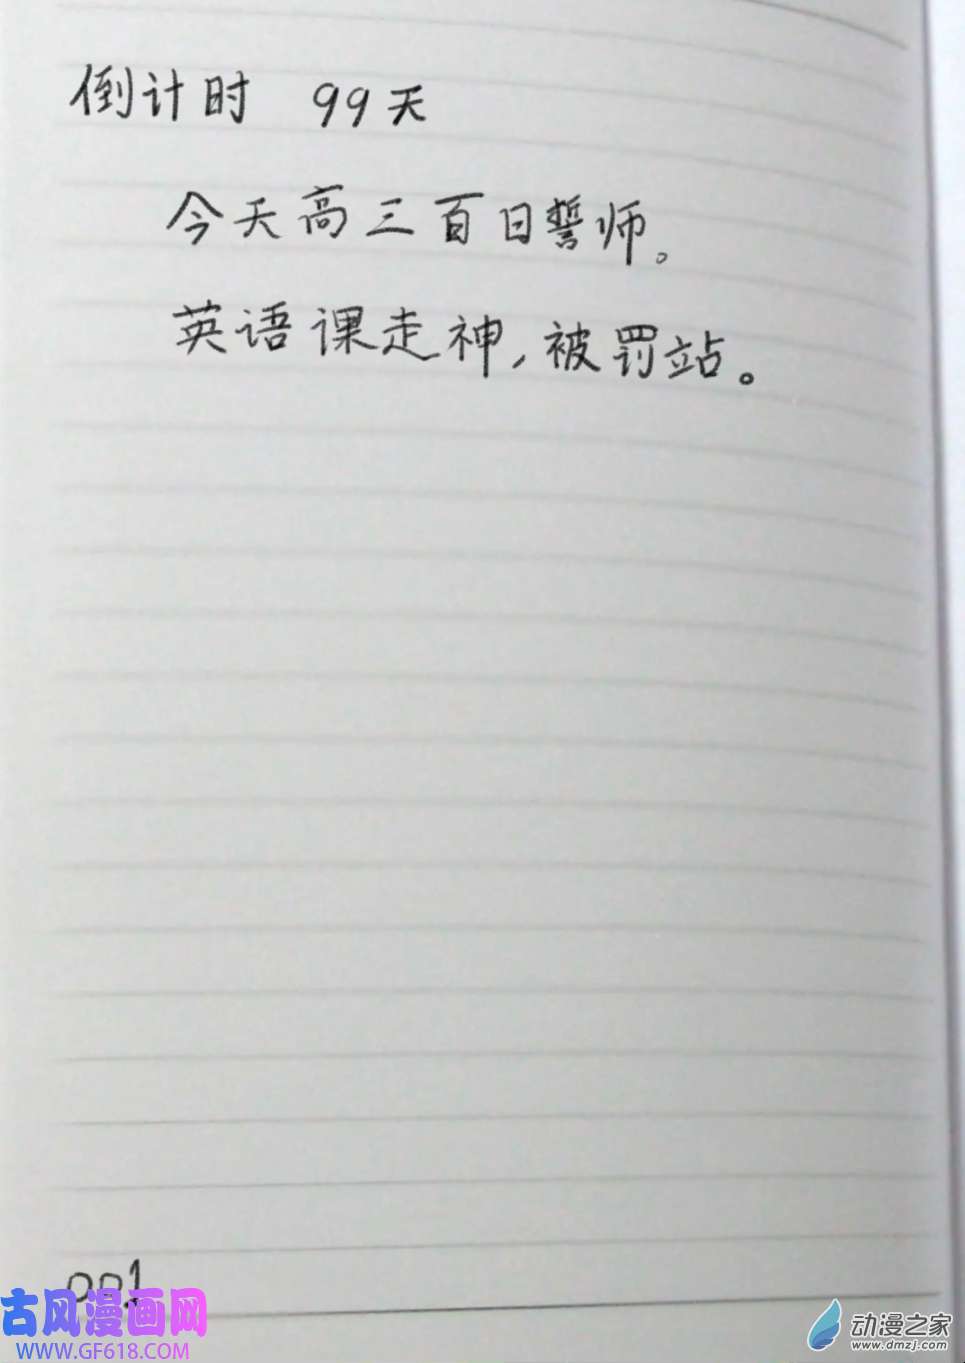 倒计时 99天
今天高三百日誓师。
英语课走神,被罚站。
001
古风漫画网
WWW.GF618.COM
动漫之家
www.dmzj.com